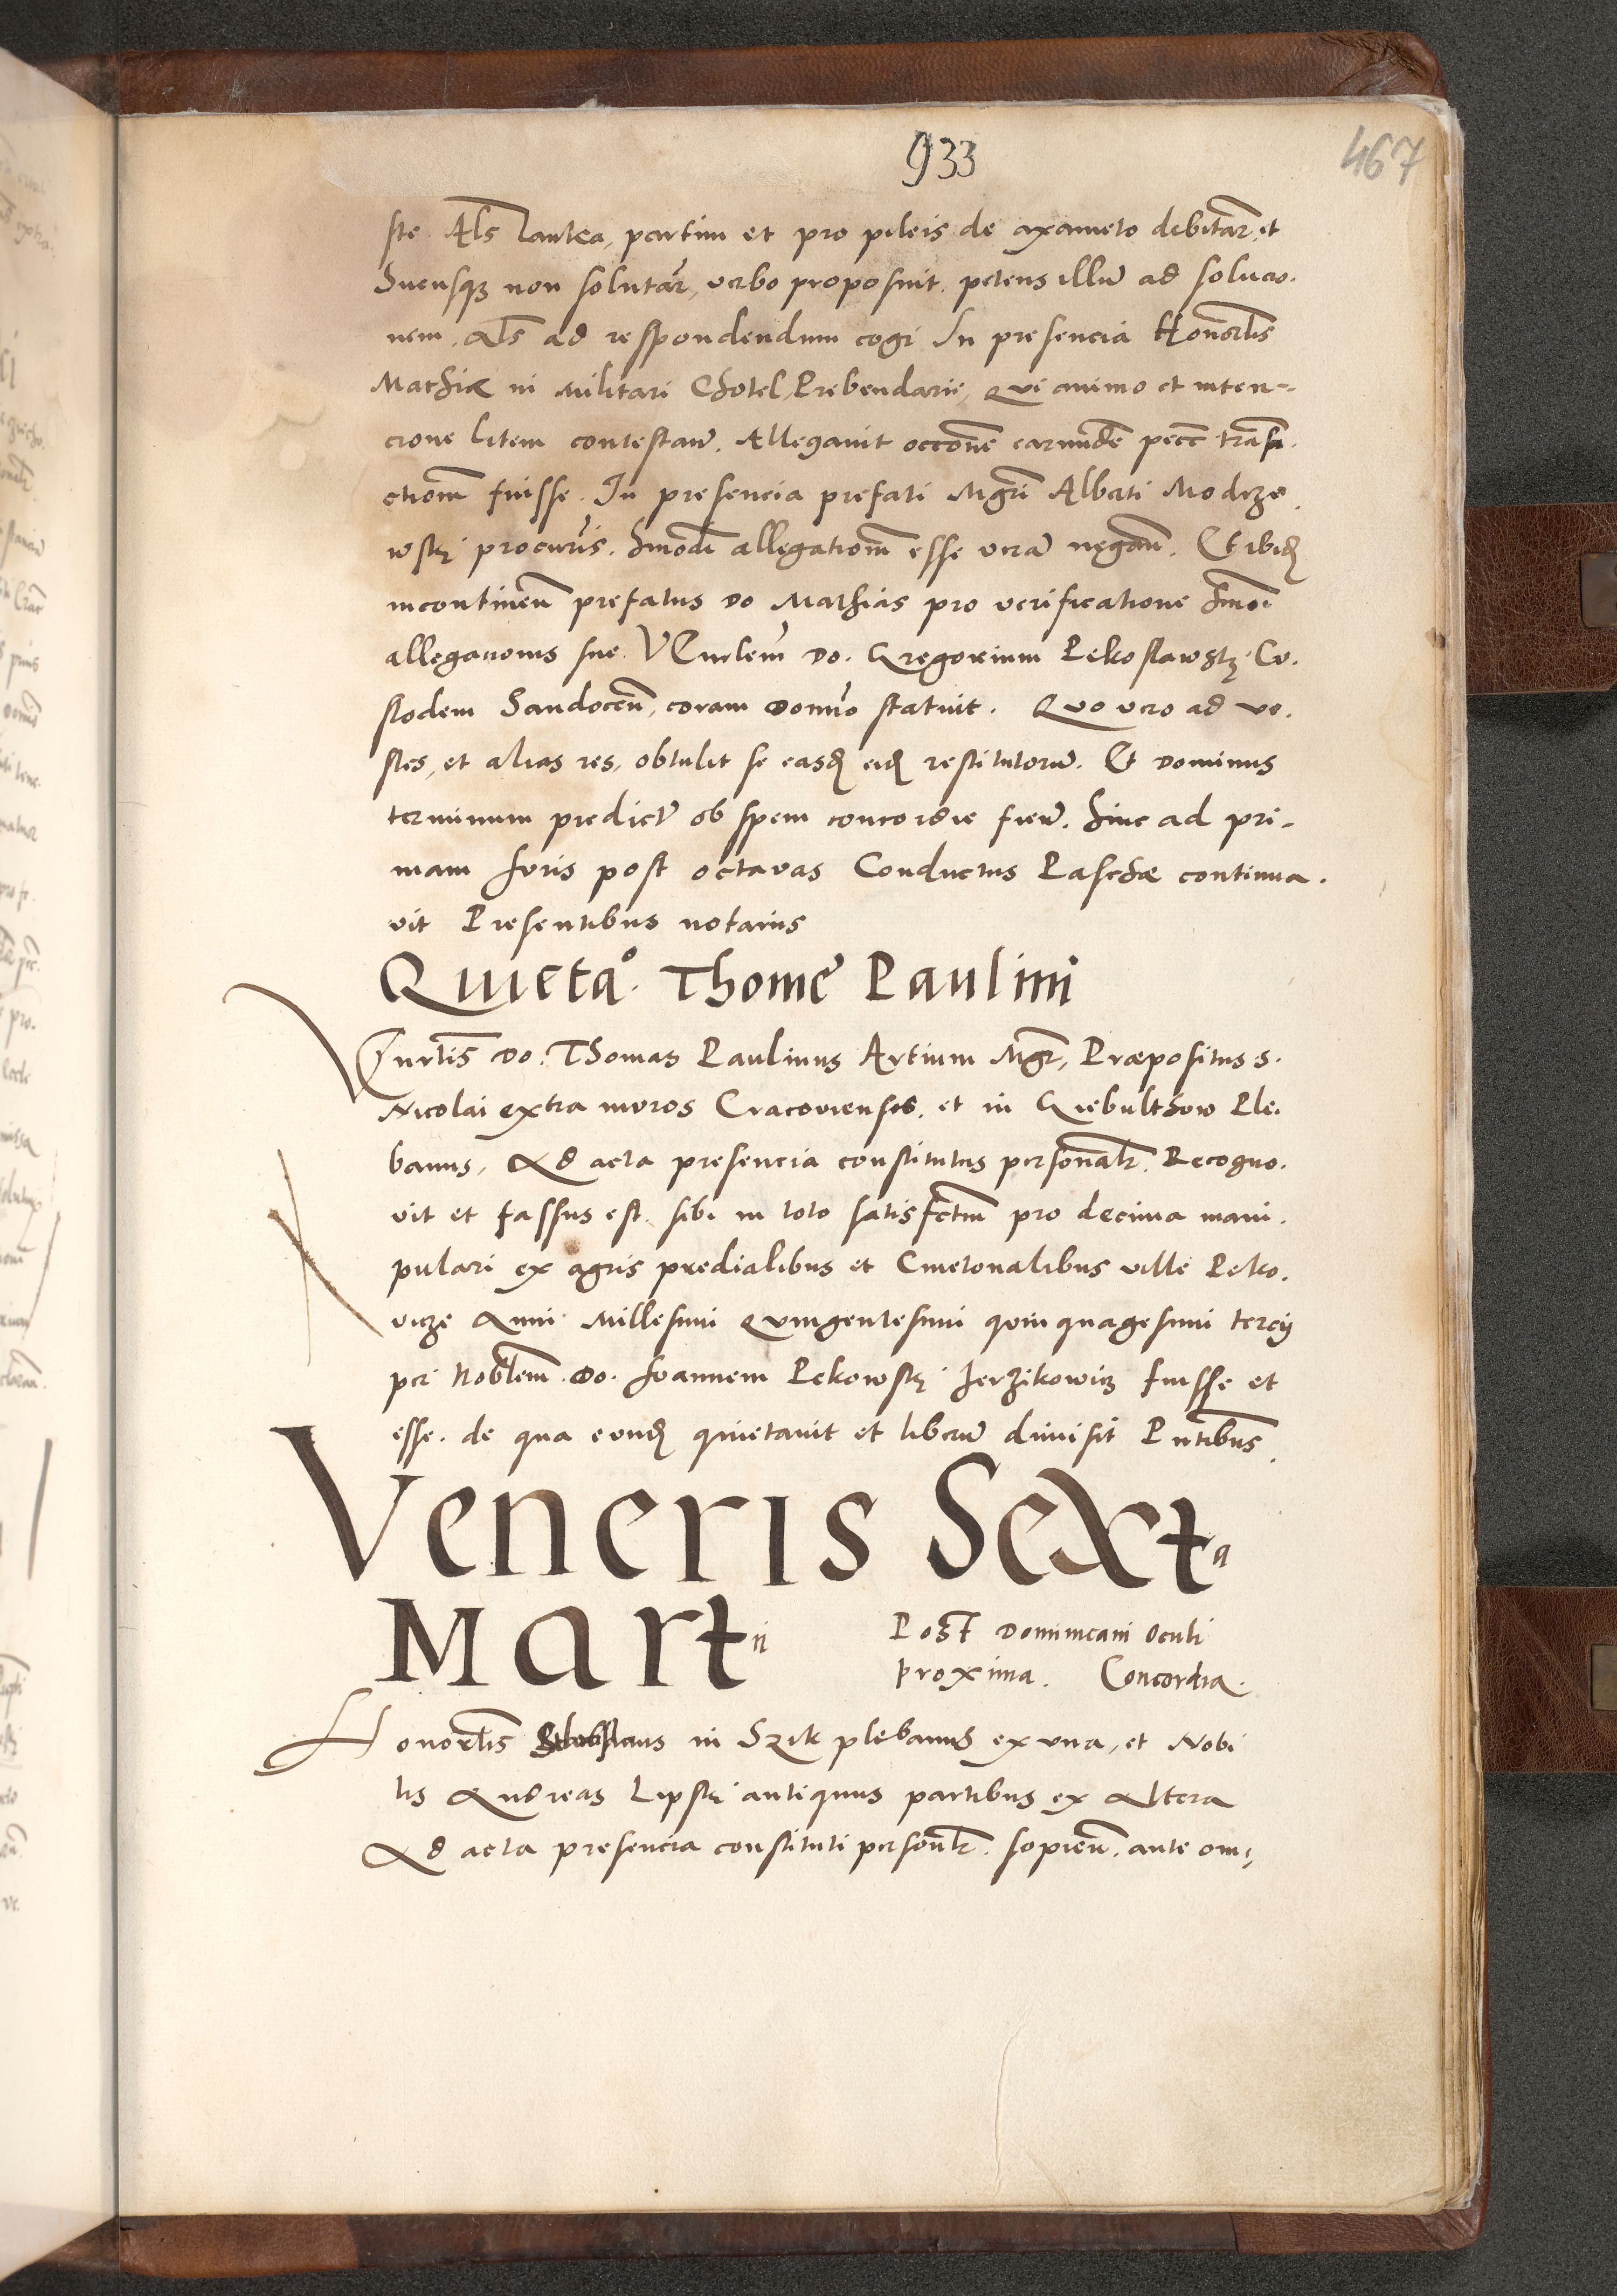 933
467
ste. Als Lantea, partim et pro pileis de axameto debitar. et
Sucusqz non solutar, verbo proposuit. petens illu ad solucio.
nem, als ad respondendum cogi In presencia Honorlis
Mathiæ in Militari Chotel, Prebendarii, Qui animo et inten-
cione litem contestan. Allegavit occone earunde pecc transa.
ctiom fuisse. In presencia prefati Mgri Albrti Modrze.
wski procuris. hmodi allegationm esse vera negan. Et ibid
incontinen prefatus Do Mathias pro verificatione hmoi
allegacionis sue. Venlem Do. Gregorium Pekoslawski Cu.
stodem Sandocen, coram Domno statuit. Quo vero ad ve.
stes, et alias res, obtulit se easd eid restituturu. Et Dominus
terminum predictu ob spem concordie fien. hinc ad pri-
mam Juris post octavas Conductus Paschæ continua.
vit Presentibus notarius
Quieta°. Thome Paulini
Venrlis Do. Thomas Paulinus Artium Mgr, Præpositus S.
Nicolai extra muros Cracovienses. et in Giebulthow Ple.
banus, Ad acta presencia constitutus personalr. Recogno.
vit et fassus est. sibi in toto satisfctm pro decima mani.
pulari ex agris predialibus et Cmetonalibus ville Peko.
vicze Anni Millesimi Quingentesimi quinquagesimi tercij
per Nobilem. Do. Joannem Pekowski Jerzikowicz fuisse et
esse. de qua eund quietavit et liberu dimisit Pntibus.
Veneris Sexta
Martii
Post Dominicam Oculi
proxima. Concordia.
Honorlis in Szik plebanus ex una, et Nobi
lis Andreas Lipski antiquus partibus ex Altera
Ad acta presencia constituti personlr. sopien. ante om;